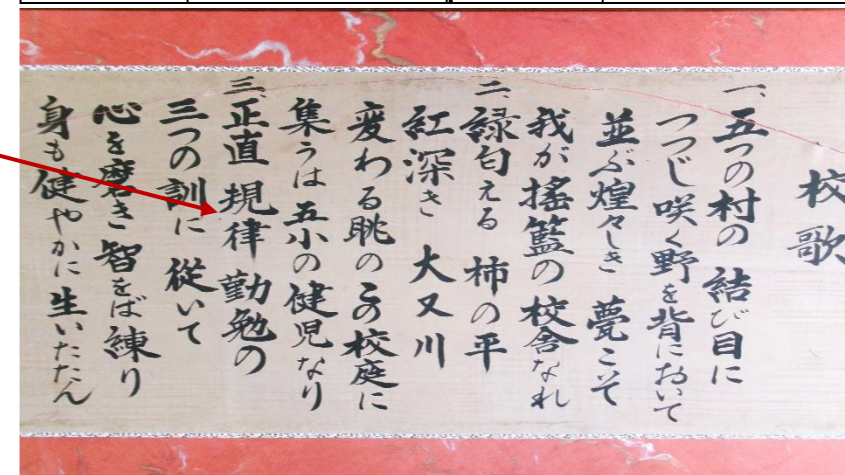 校歌
一、五つの村の 結び目に
つつじ咲く野を背において
並ぶ煌々しき 甍こそ
我が揺籃の 校舎なれ
二、緑匂える 柿の平
紅深き 大又川
変わる眺のこの校庭に
集うは 五小の健児なり
三、正直 規律 勤勉の
三つの訓に 従いて
心を磨き 智をば練り
身も健やかに 生いたたん